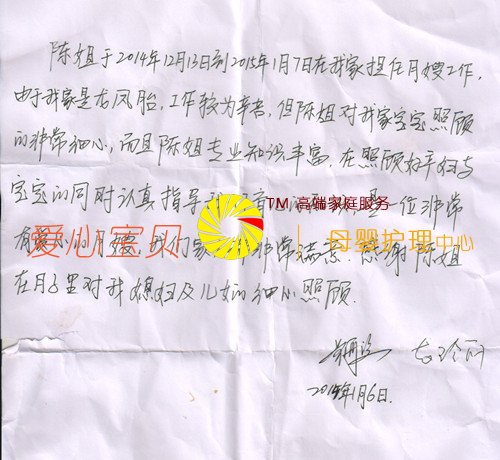 陈姐于2014年12月13日到2015年1月7日在我家担任月嫂工作,
由于我家是龙凤胎,工作较为辛苦,但陈姐对我家宝宝照顾
的非常细心,而且陈姐专业知识丰富,在照顾好孕妇与
宝宝的同时认真指导 是一位非常
TM 高端家庭服务
有 的月嫂,我们家 非常满意.感谢陈姐
爱心宝贝 母婴护理中心
在月子里对我媳妇及儿女的细心照顾.
2015年1月6日.